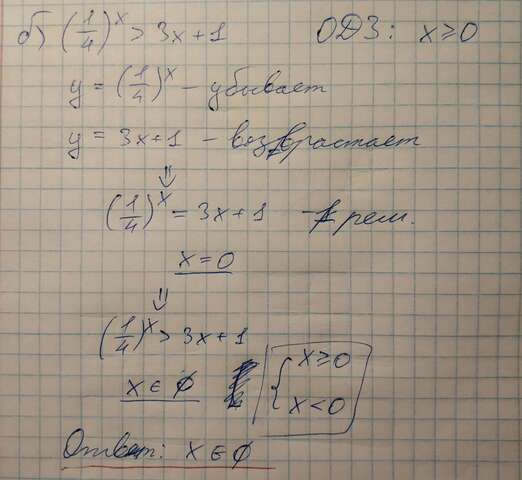 б) (1/4)^x > 3x+1 ОДЗ: x⩾0
y = (1/4)^x – убывает
y = 3x+1 – возврастает
⇓
(1/4)^x = 3x+1 – 1 реш.
x=0
⇓
(1/4)^x > 3x+1
x ∈ ∅ { x⩾0
x<0
Ответ: x ∈ ∅